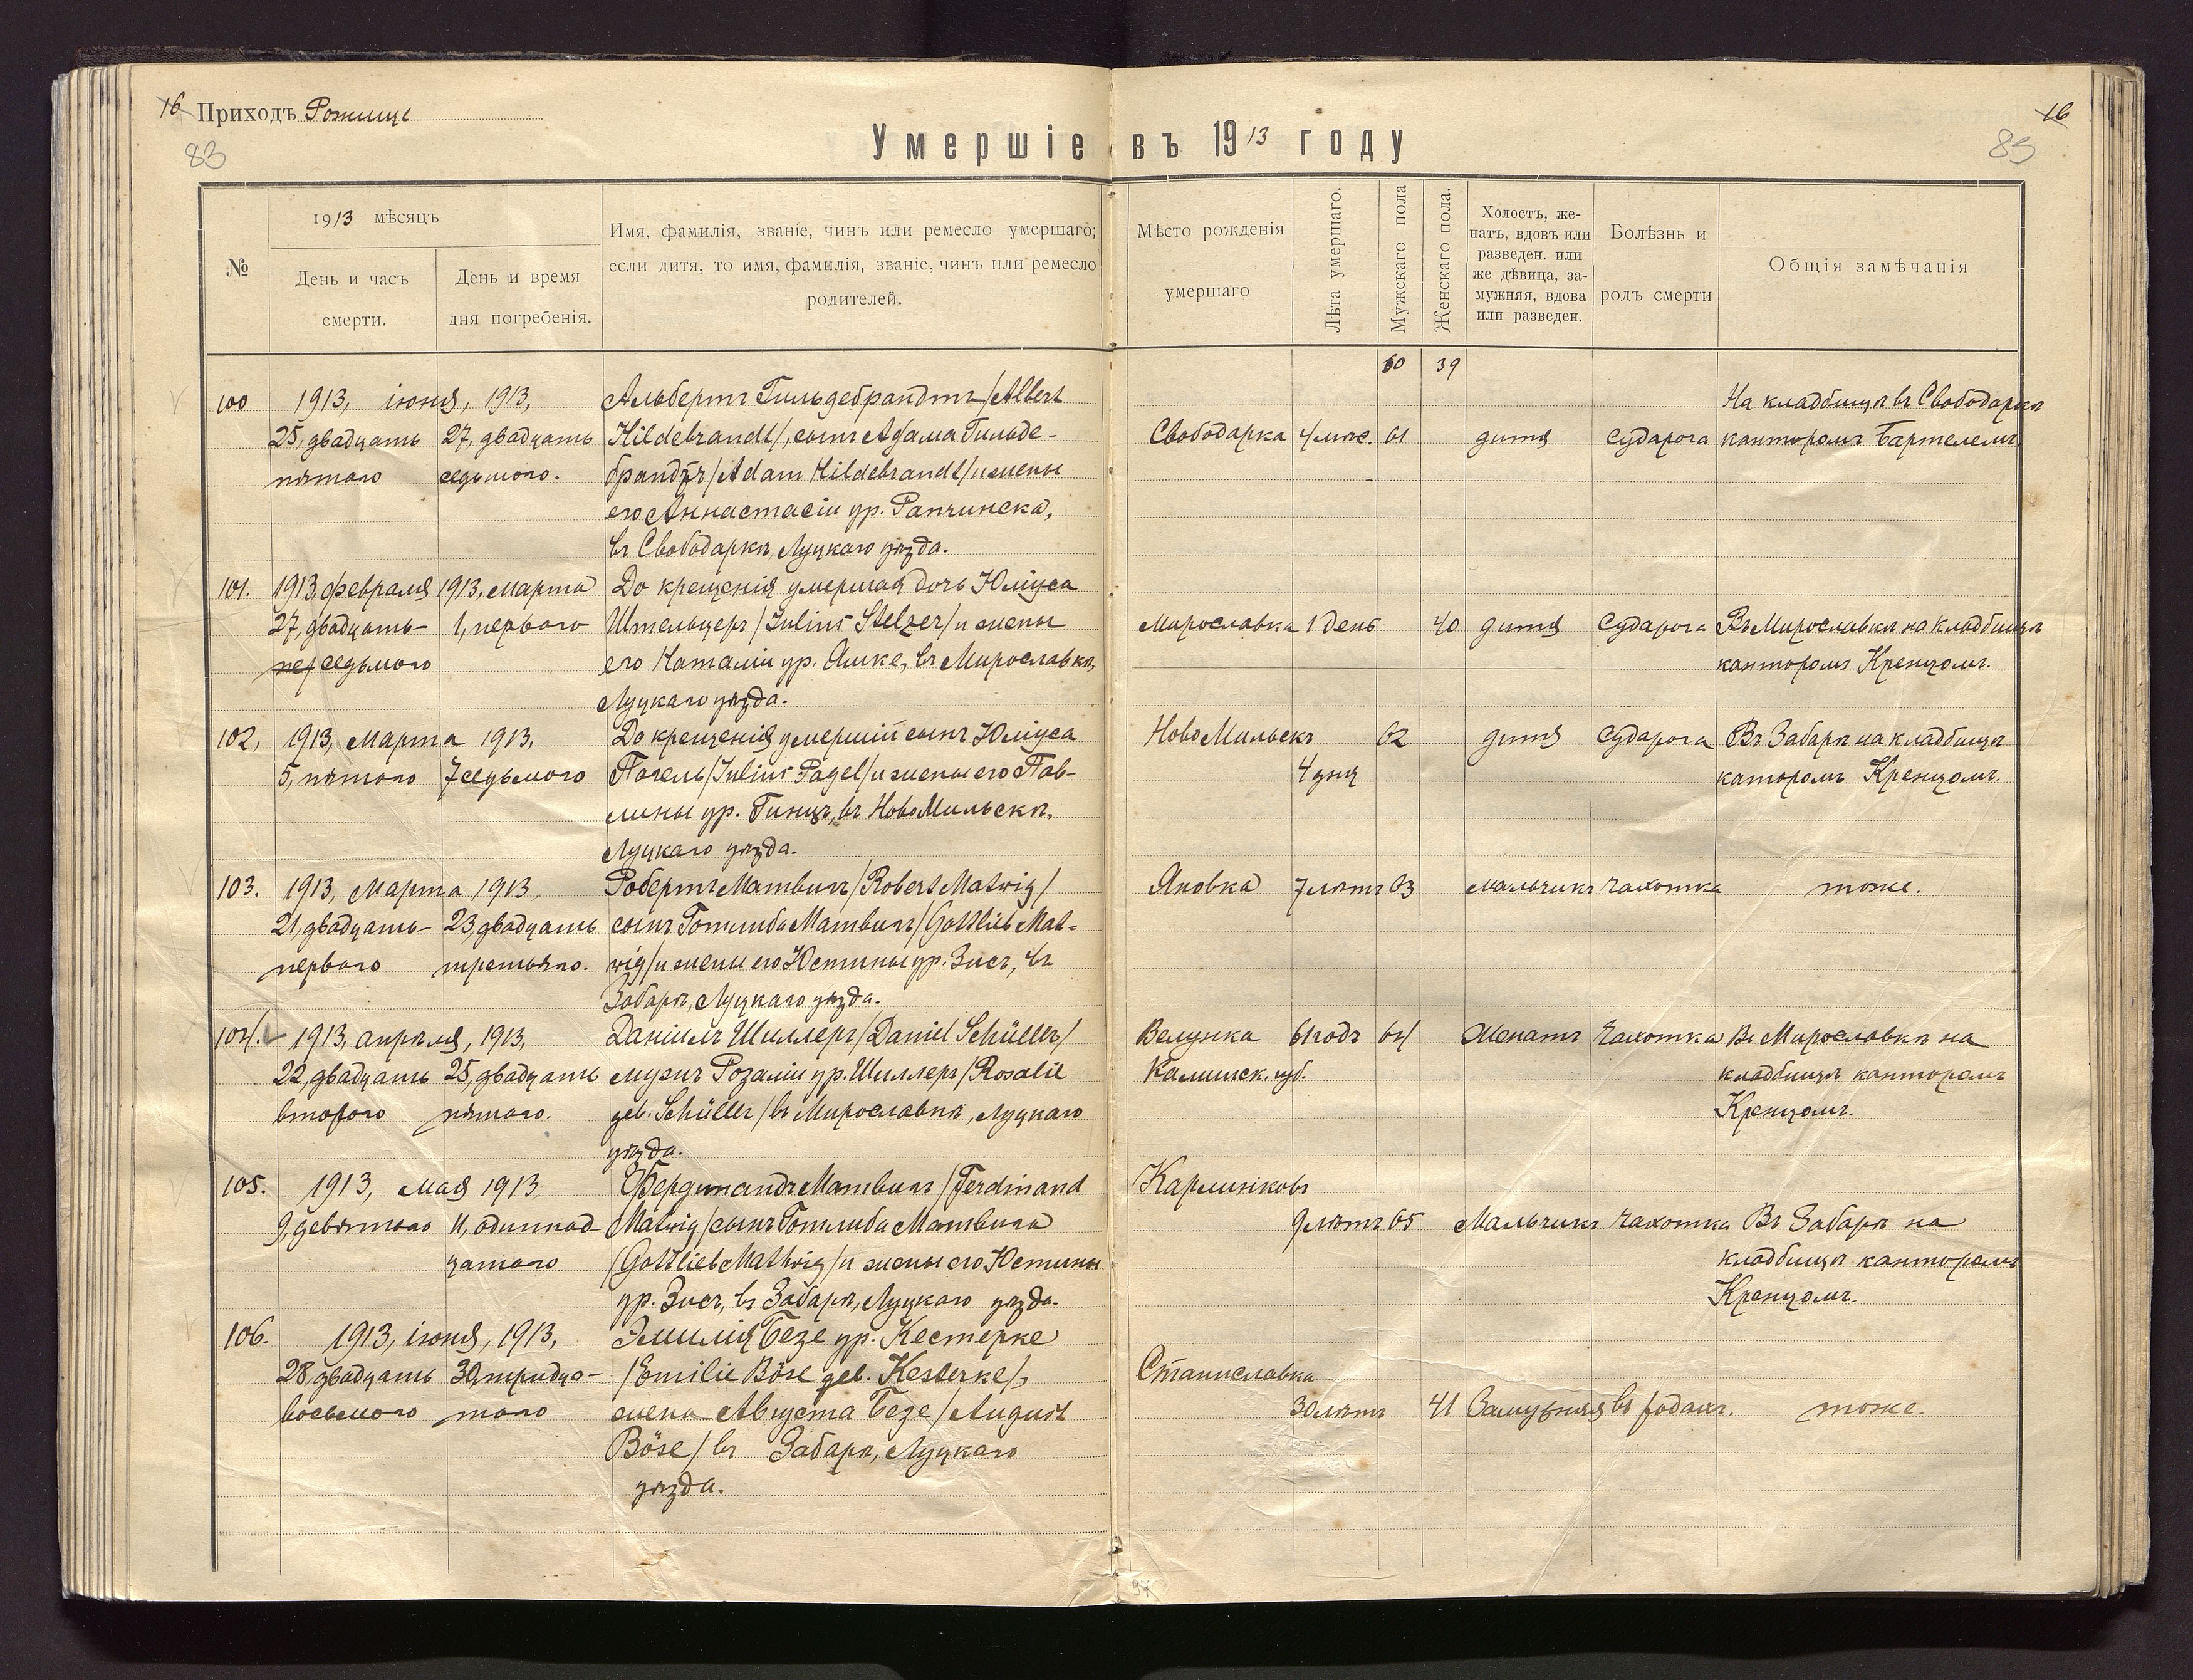 16 Приходъ Рожище
16
83
83
Умершіе въ 1913 году
№
1913 мѣсяцъ
День и часъ смерти.
День и время дня погребенія.
Имя, фамилія, званіе, чинъ или ремесло умершаго;
если дитя, то имя, фамилія, званіе, чинъ или ремесло
родителей.
Мѣсто рожденія
умершаго
Лѣта умершаго.
Мужскаго пола
Женскаго пола.
Холостъ, же-
натъ, вдовъ или
разведен. или
же дѣвица, за-
мужняя, вдова
или разведен.
Болѣзнь и
родъ смерти
Общія замѣчанія
60 39
100 1913, іюня, 1913, Альбертъ Гильдебрандтъ /Albert На кладбищѣ въ Свободаркѣ
25, двадцать 27, двадцать Hildebrandt/, сынъ Адама Гильде- Свободарка 4 мѣс. 61 дитя Судорога канторомъ Бартелемъ.
пятаго седьмого. брандтъ /Adam Hildebrandt/ и жены
его Аннастасіи ур. Рапчинска,
въ Свободаркѣ, Луцкаго уѣзда.
101. 1913, февраля 1913, марта До крещенія умершая дочь Юліуса
27, двадцать- 1, перваго Штельцеръ /Julius Stelzer/ и жены Мирославка 1 день 40 дитя Судорога Въ Мирославкѣ на кладбищѣ
пер седьмого его Наталіи ур. Яшке, въ Мирославкѣ, канторомъ Кренцомъ.
Луцкаго уѣзда.
102, 1913, Марта 1913, До крещенія умершій сынъ Юліуса НовоМильскъ 62 дитя Судорога Въ Забарѣ на кладбищѣ
5, пятаго 7 седьмого Пагель /Julius Pagel/ и жены его Пав- 4 дня каторомъ Кренцомъ.
лины ур. Гинцъ, въ НовоМильскѣ,
Луцкаго уѣзда.
103. 1913, Марта 1913, Робертъ Матвигъ /Robert Matwig/ Яновка 7 лѣтъ 63 мальчикъ Чахотка тоже.
21, двадцать- 23, двадцать сынъ Готлиба Матвигъ /Gottlieb Mat-
перваго третьяго. wig/ и жены его Юстины ур. Зисъ, въ
Забарѣ, Луцкаго уѣзда.
104. 1913, апрѣля, 1913, Даніилъ Шиллеръ /Daniel Schüller/ Велунка 61 годъ 64 Женатъ Чахотка Въ Мирославкѣ на
22, двадцать 25, двадцать мужъ Розаліи ур. Шиллеръ /Rosalie Калишск. губ. кладбищѣ канторомъ
второго пятаго. geb. Schüller/ въ Мирославкѣ, Луцкаго Кренцомъ.
уѣзда.
105. 1913, мая 1913, Фердинандъ Матвигъ /Ferdinand Карлинковъ
9, девятаго 11, одиннад- Matwig/ сынъ Готлиба Матвига 9 лѣтъ 65 Мальчикъ Чахотка Въ Забарѣ на
цатаго /Gottlieb Mathwig/ и жены его Юстины кладбищѣ канторомъ
ур. Зисъ, въ Забарѣ, Луцкаго уѣзда. Кренцомъ.
106. 1913, іюня, 1913, Эмилія Безе ур. Кестерке
28, двадцать 30, тридца- /Emilie Böse geb. Kesterke/, Станиславка
восьмого таго жена Августа Безе /August 30 лѣтъ 41 Замужняя въ родахъ. тоже.
Böse/ въ Забарѣ, Луцкаго
уѣзда.